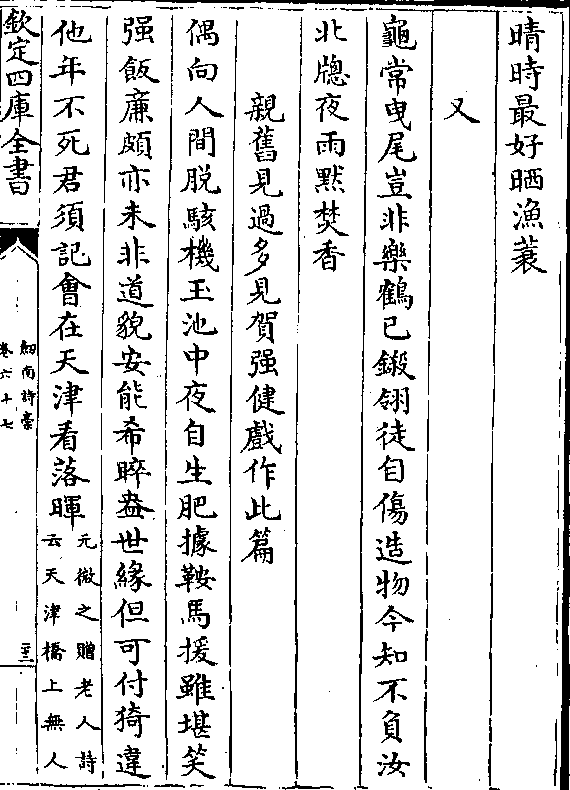 晴時最好晒漁蓑
又
龜常曳尾豈非樂鶴已鎩翎徒自傷造物今知不負汝
北牕夜雨默焚香
親舊見過多見賀强健戲作此篇
偶向人間脱駭機玉池中夜自生肥據鞍馬援雖堪笑
强飯廉頗亦未非道貌安能希睟盎世緣但可付猗違
他年不死君須記會在天津看落暉元微之贈老人詩
云天津橋上無人
欽定四庫全書
劒南詩稾
卷六十七